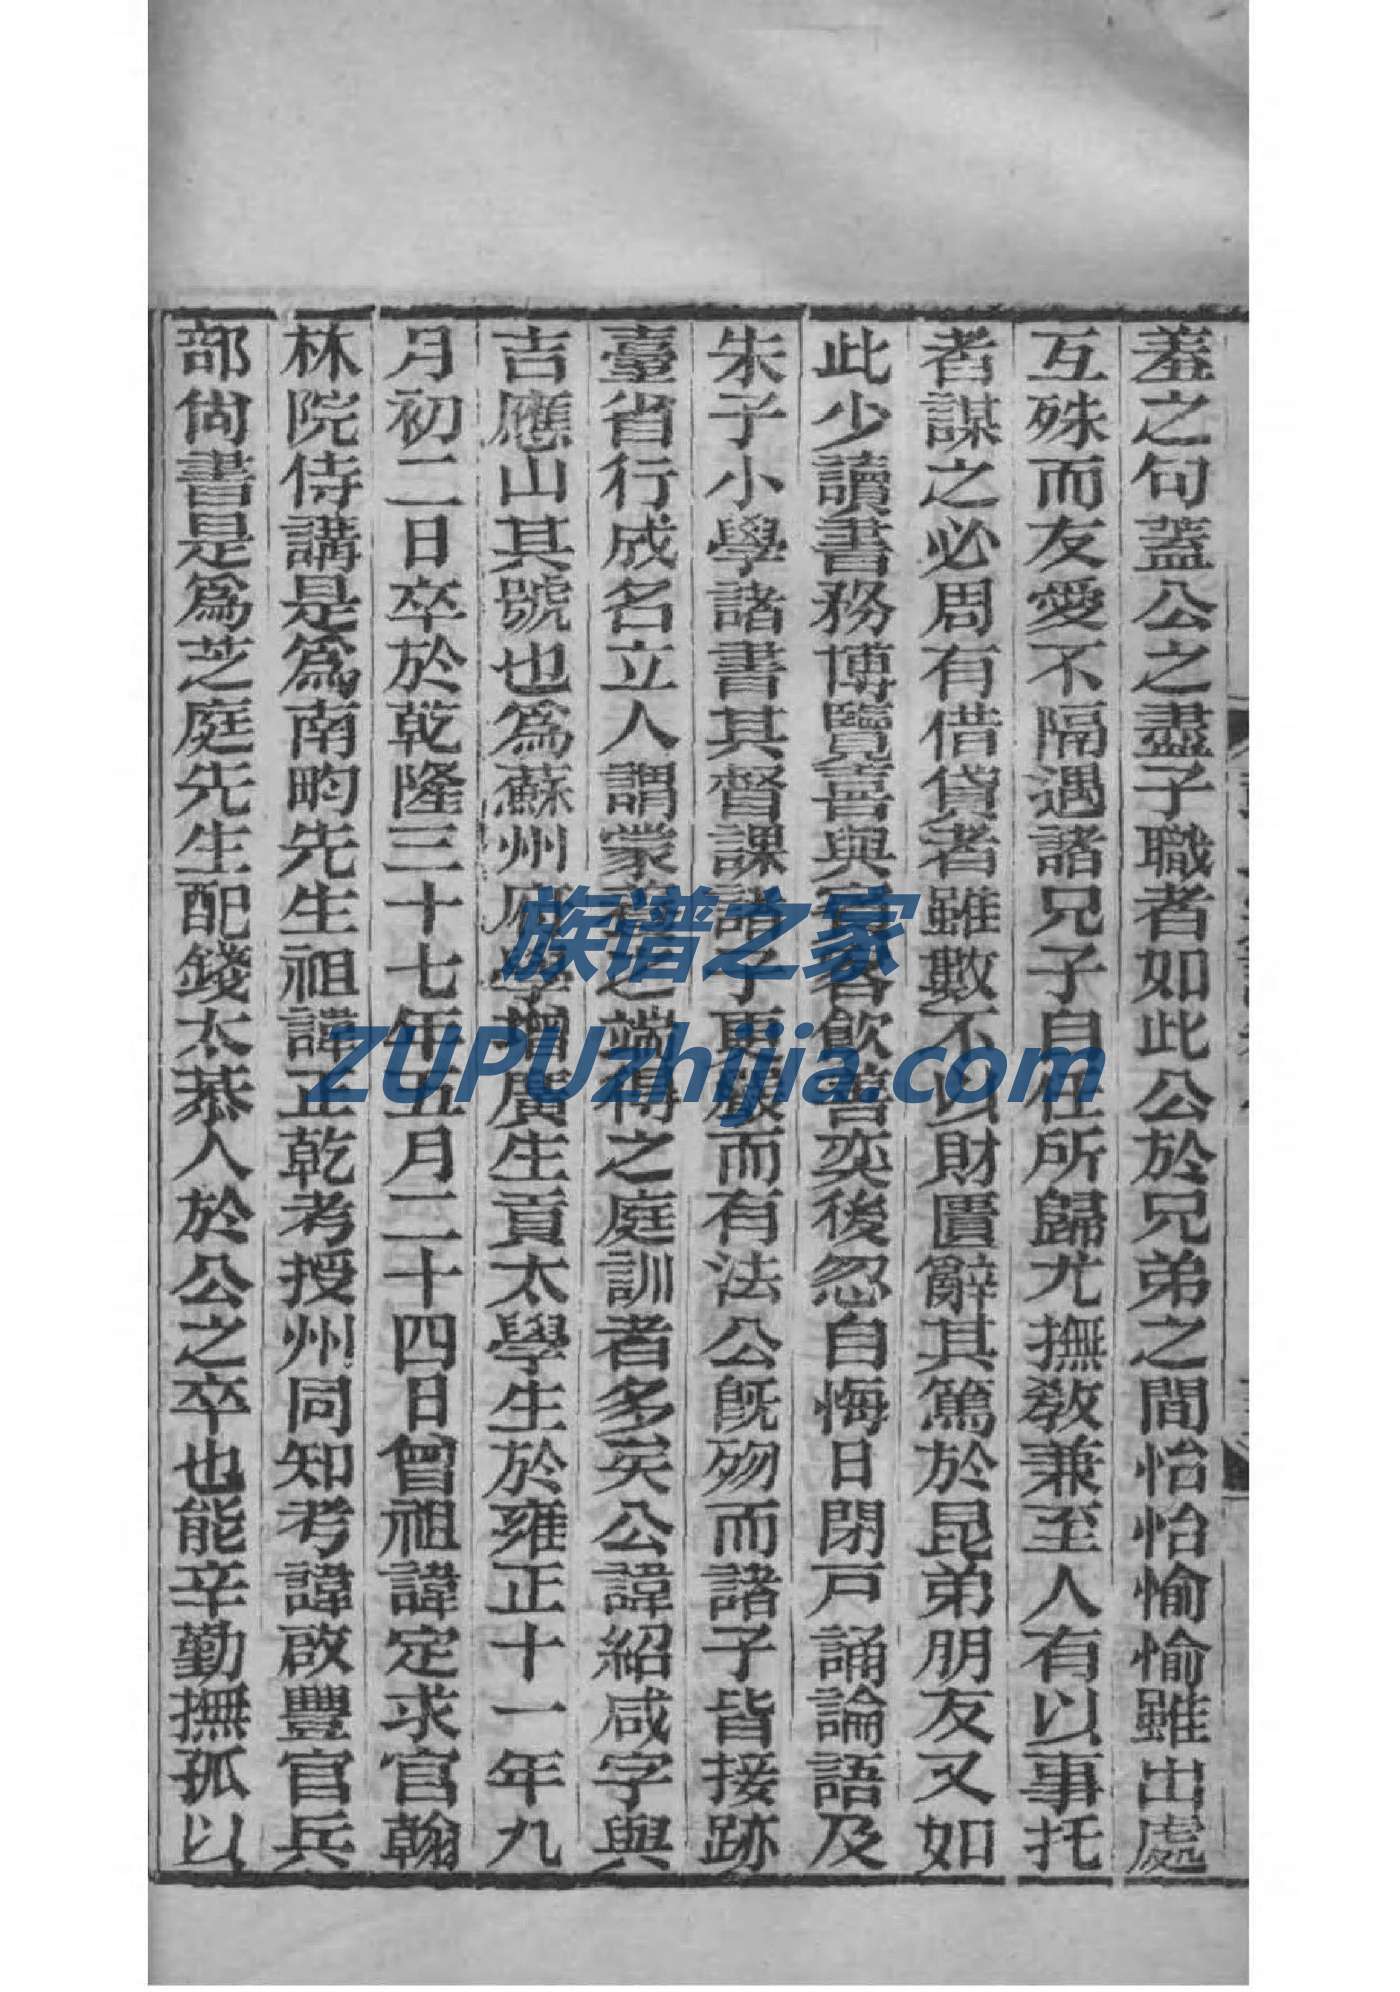 羞之句蓋公之盡子職者如此公於兄弟之間怡怡愉愉雖出處
互殊而友愛不隔遇諸兄子自任所歸尤撫教兼至人有以事托
者謀之必周有借貸者雖數不以財匱辭其篤於昆弟朋友又如
此少讀書務博覽喜與賓客飲善奕後忽自悔日閉戸誦論語及
朱子小學諸書其督課諸子更嚴而有法公旣歿而諸子皆接跡
臺省行成名立人謂蒙養之端得之庭訓者多矣公諱紹咸字與
吉應山其號也爲蘇州府學增廣生貢太學生於雍正十一年九
月初二日卒於乾隆三十七年五月二十四日曾祖諱定求官翰
林院侍講是爲南畇先生祖諱正乾考授州同知考諱啟豐官兵
部尙書是爲芝庭先生配錢太恭人於公之卒也能辛勤撫孤以
族谱之家
ZUPUzhijia.com